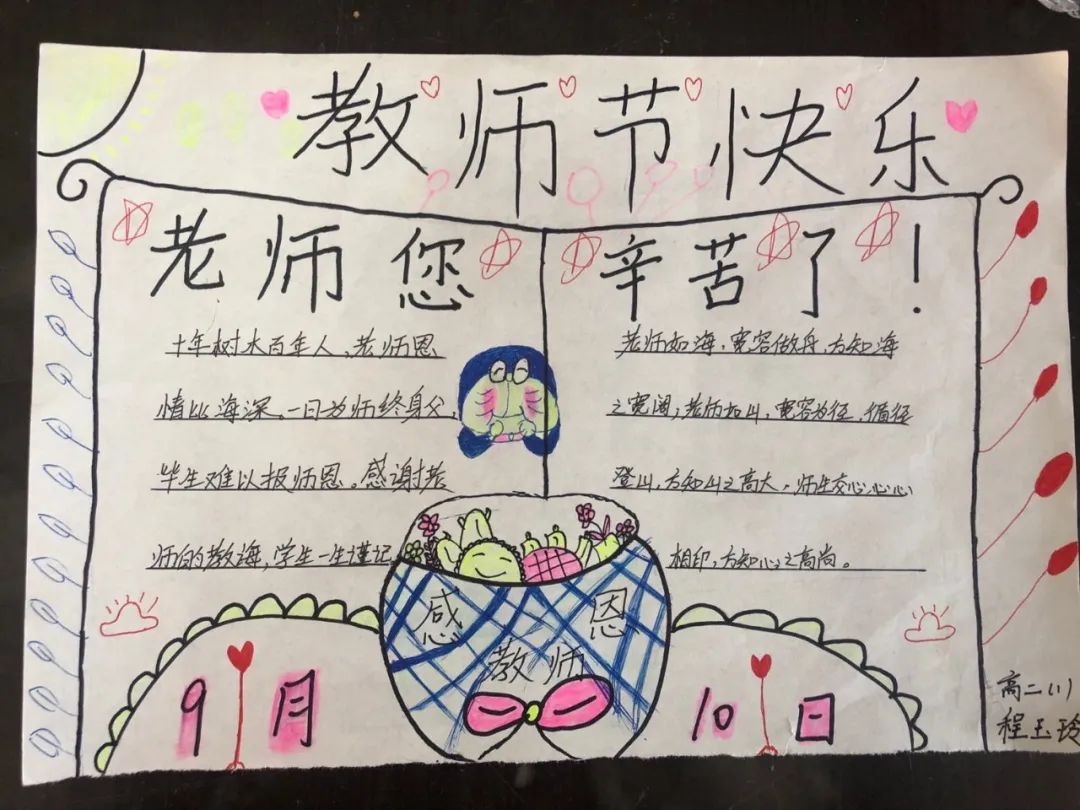 教师节快乐
老师您
辛苦了！
十年树木百年人，老师恩
情比海深，一日为师终身父，
毕生难以报师恩。感谢老
师的教海，学生一生谨记
老师如海，宽容做舟，方知海
之宽阔；老师如山，宽容为径，循径
登山，方知山之高大，师生交心心心
相印，方知心之高尚。
感恩
教师
9月
10日
高二（1）
程玉玲